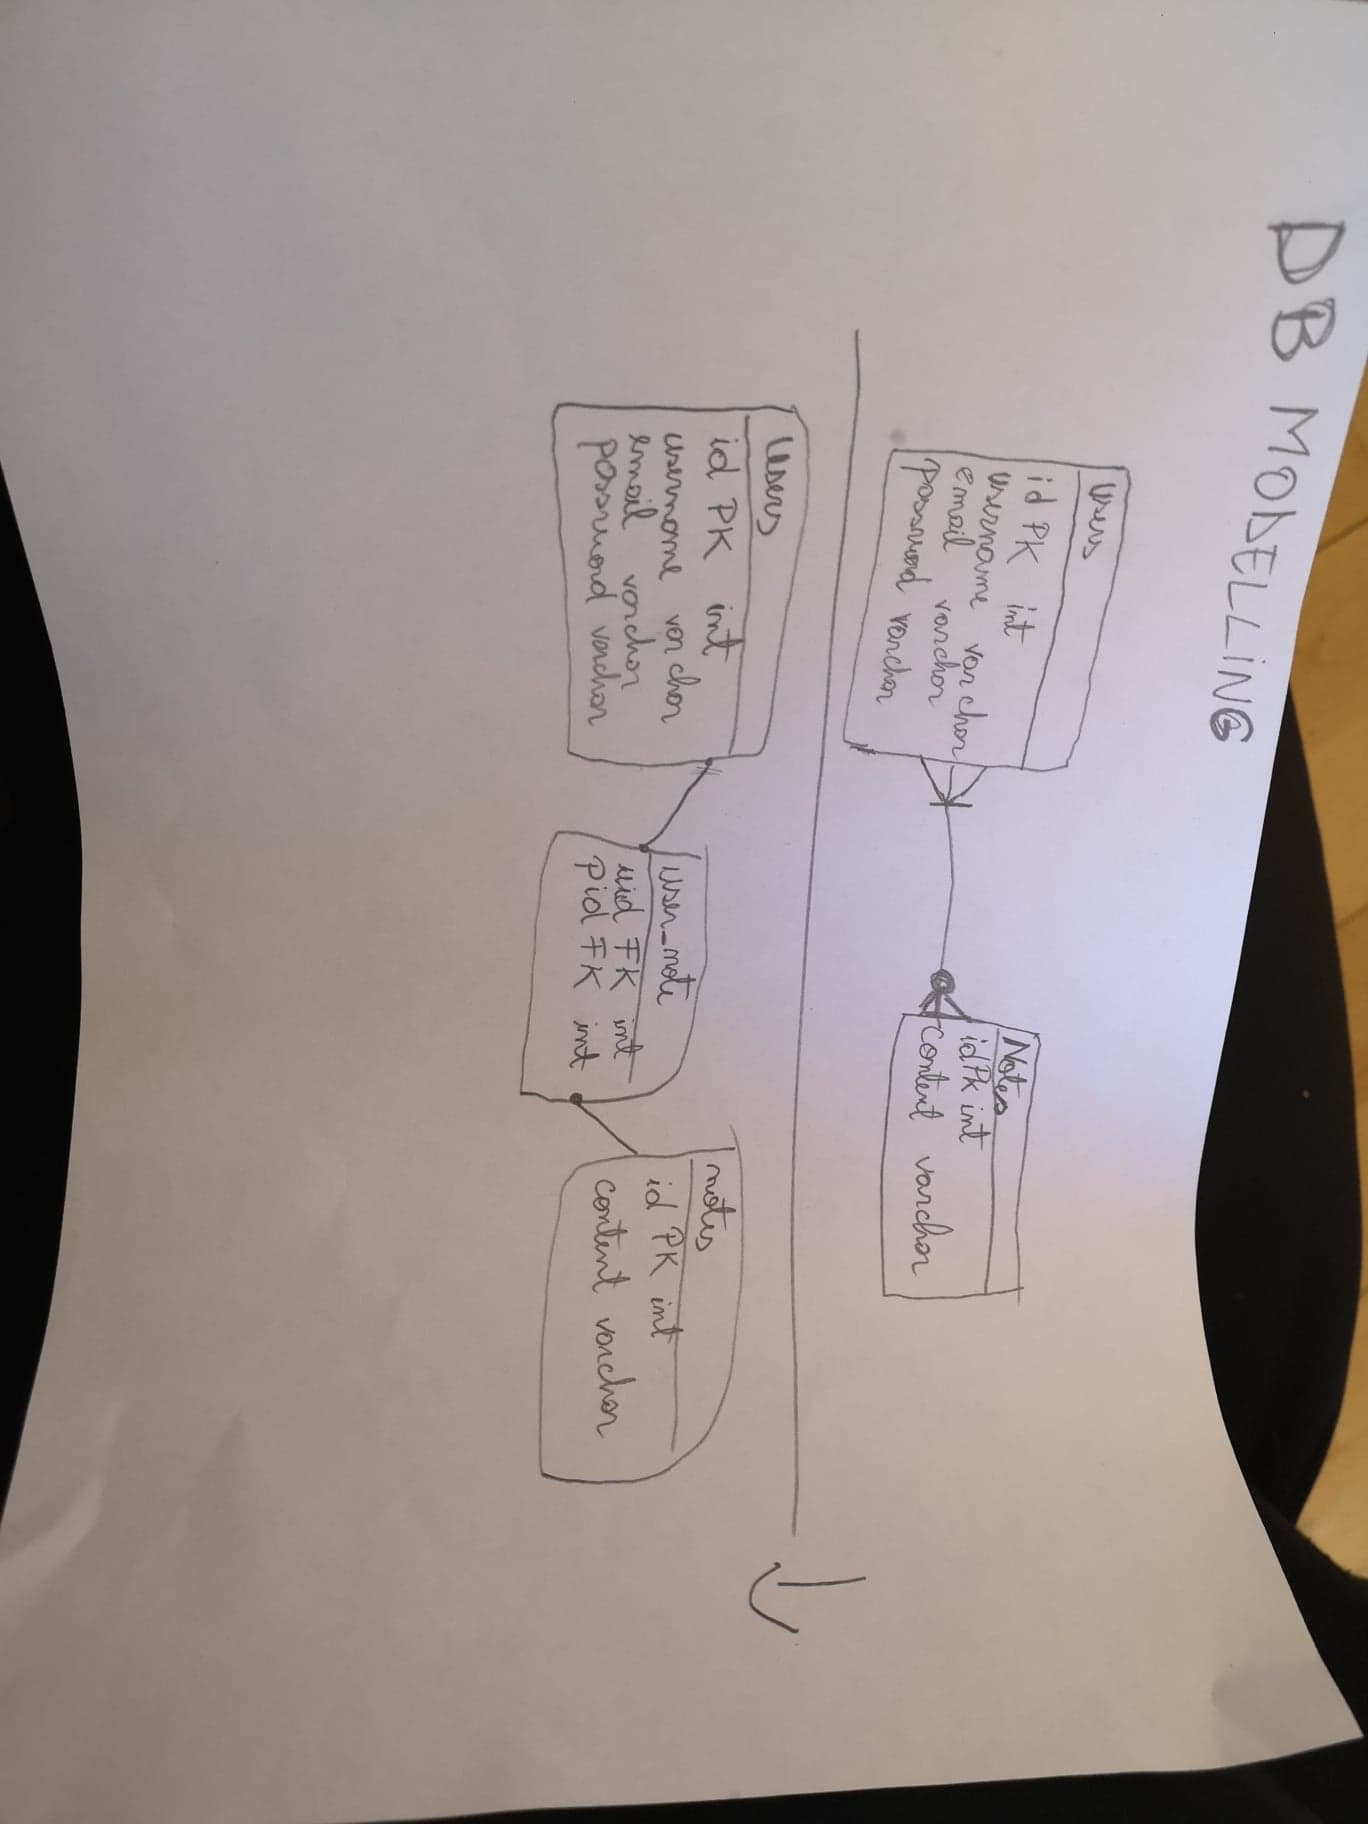 DB MODELLING
Users
id PK int
username varchar
email varchar
password varchar
Notes
id PK int
content varchar
Users
id PK int
username varchar
email varchar
password varchar
user_note
uid FK int
pid FK int
notes
id PK int
content varchar